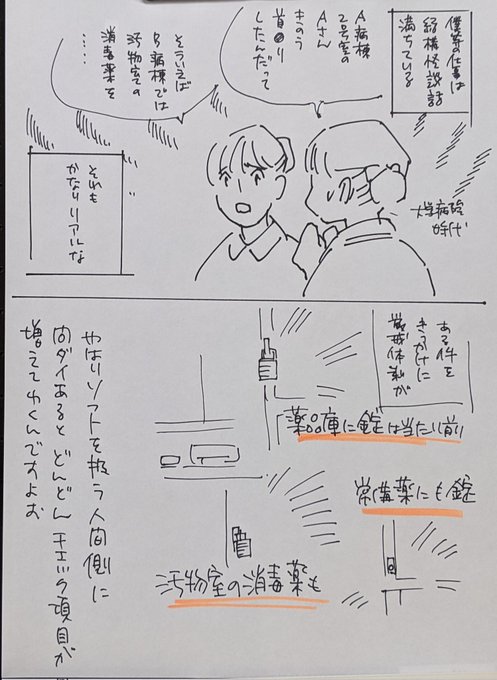 僕等の仕事は
結構怪談話
満ちている
A病棟
2号室の
Aさん
きのう
首〇り
したんだって
そういえば
B病棟では
汚物室の
消毒薬を
……
大学病院
時代
それも
かなりリアルな
ある件を
きっかけに
警戒体制が
「薬品庫に錠は当たり前」
常備薬にも錠
汚物室の消毒薬も
やはりソフトを扱う人間側に
問ダイあると どんどん チェック項目が
増えてゆくんですよお